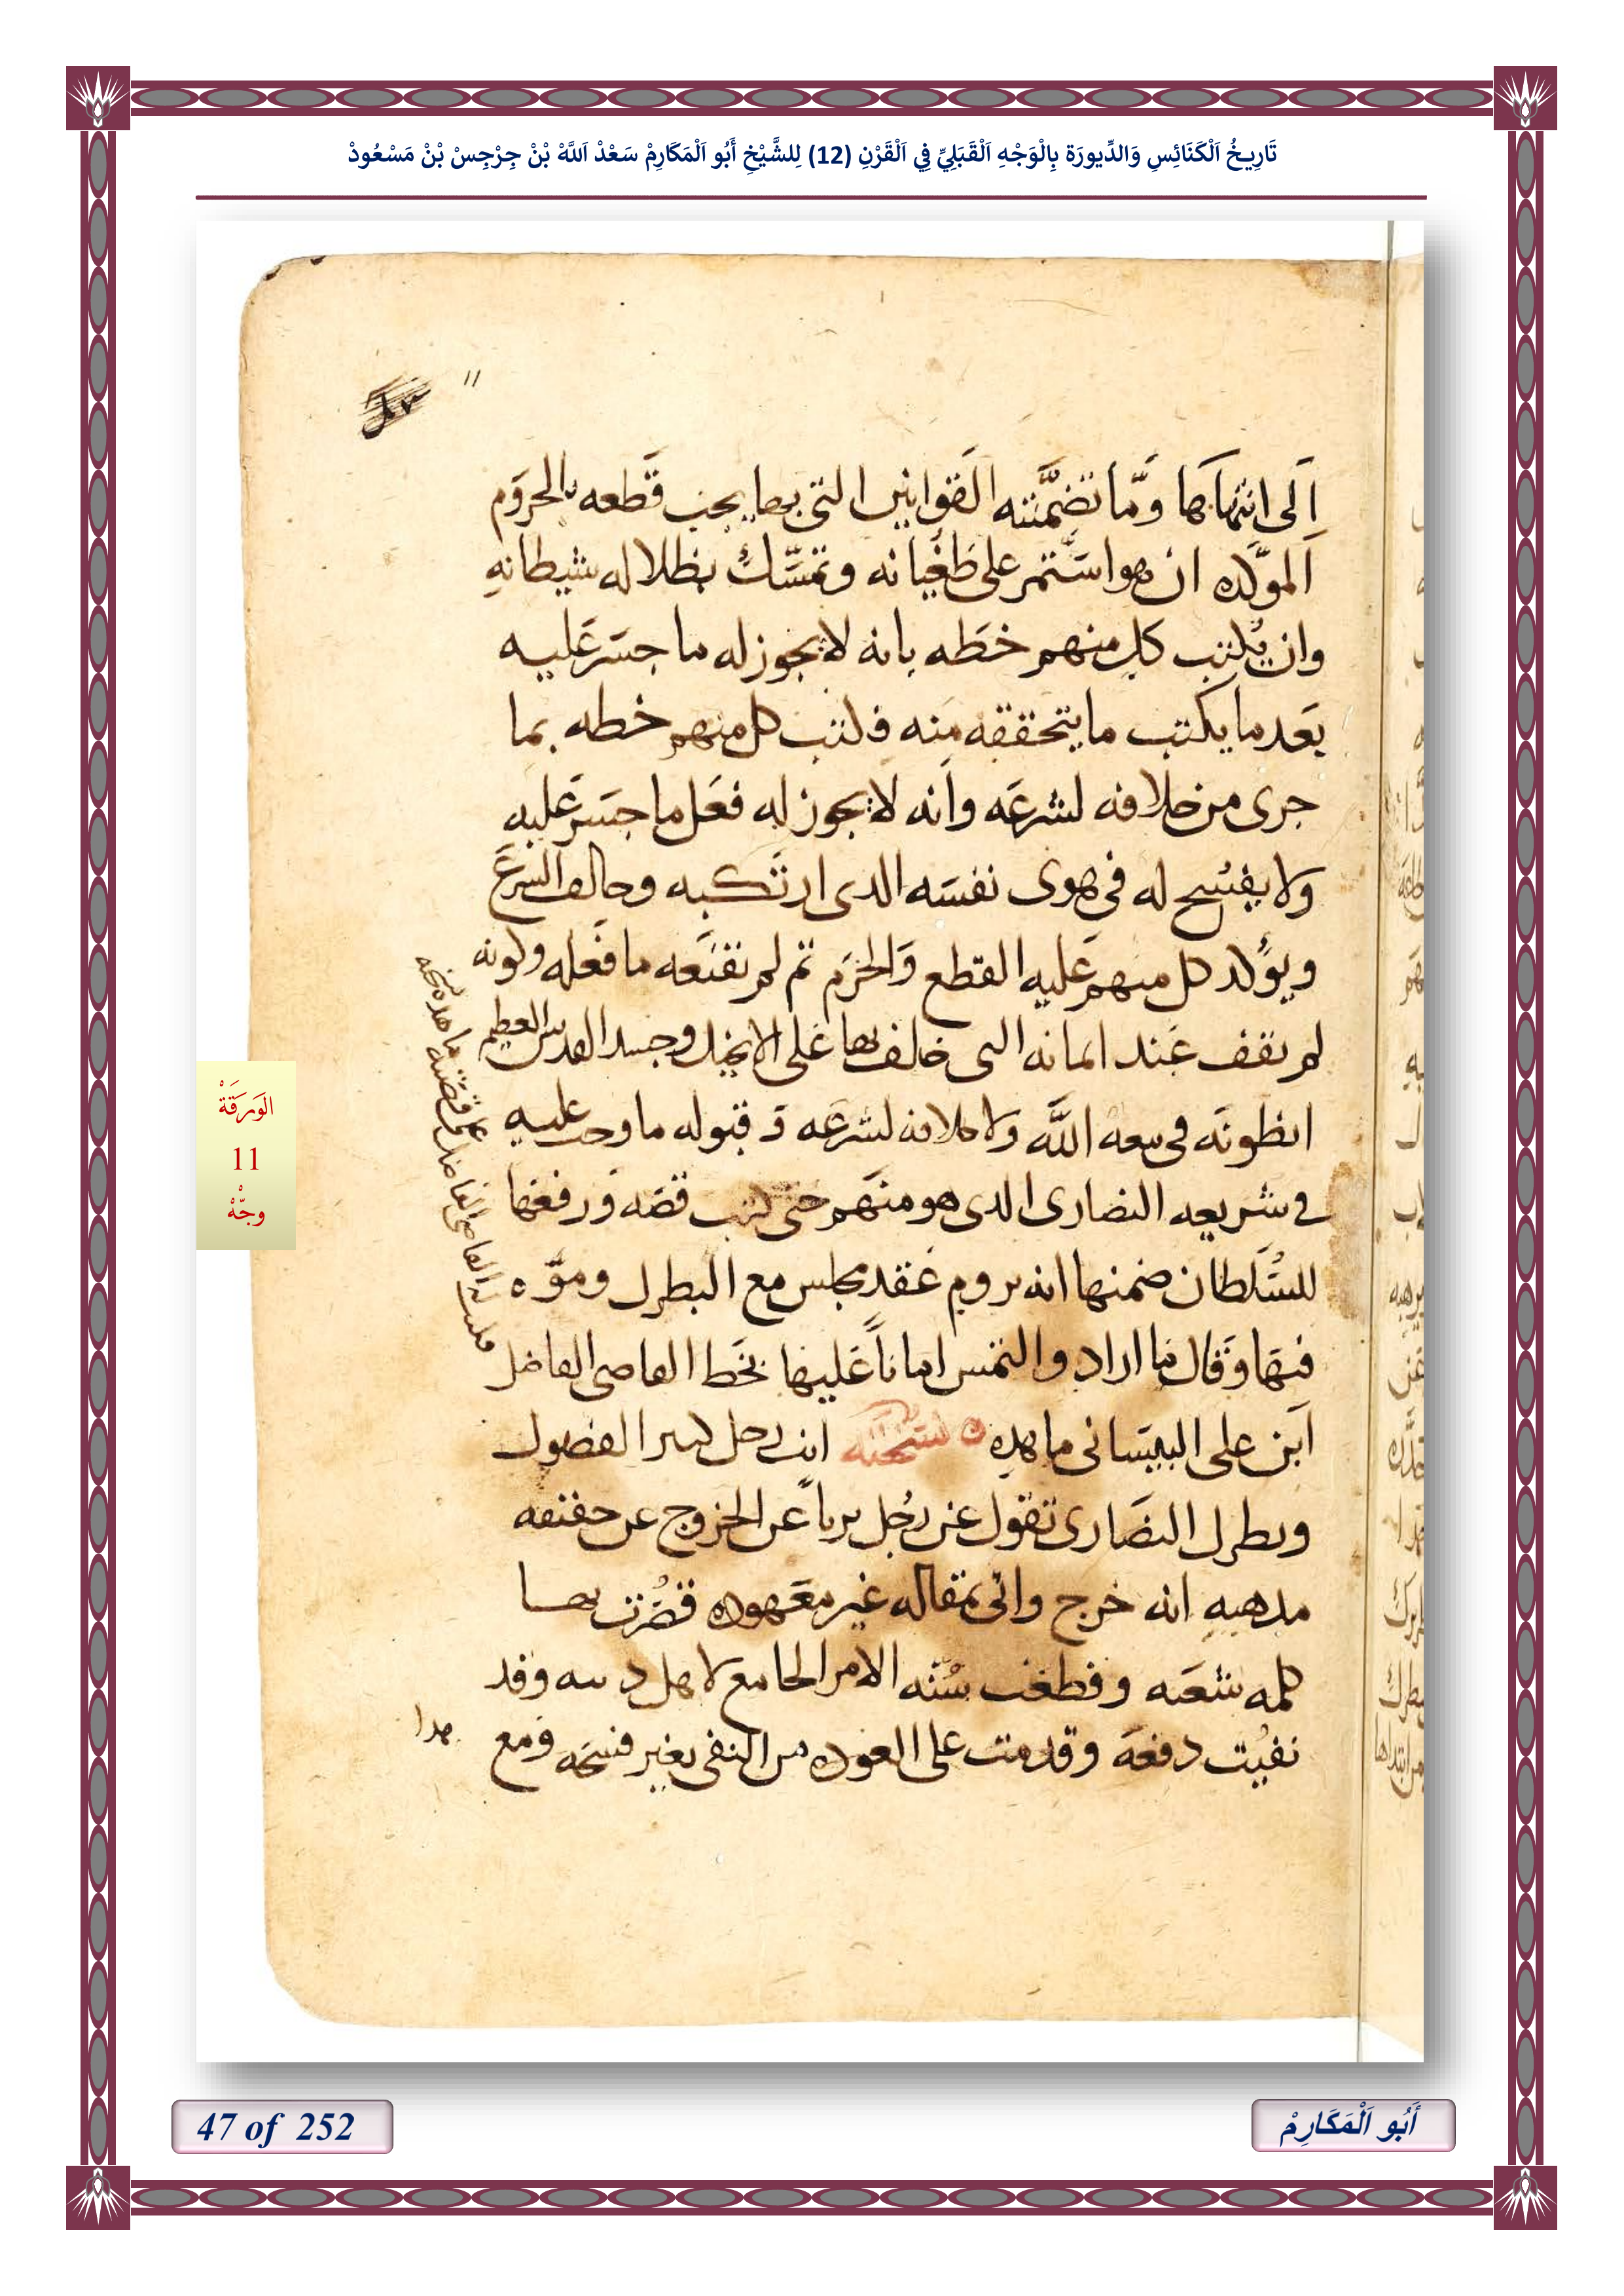 تَارِيخُ اَلْكَنَائِسِ وَالدِّيورَة بِالْوَجْهِ اَلْقَبَلِيِّ فِي اَلْقَرْنِ (12) لِلشَّيْخِ أَبُو اَلْمَكَارِمْ سَعْدْ اَللَّهْ بْنْ جِرْجِسْ بْنْ مَسْعُودْ
١١
الى انتهاكها وما تضمنته القوانين التى بها يجب قطعه بالحروم
الموكده ان هو استمر على طغيانه وتمسّك بظلاله شيطانه
وان يكتب كل منهم خطه بانه لا يجوز له ما جسر عليه
بعد ما يكتب ما يتحققه منه فكتب كل منهم خطه بما
جرى من خلافه لشرعه وانه لا يجوز له فعل ما جسر عليه
ولا يفسح له فى هوى نفسه الدى ارتكبه وخالف الشرع
ويوكد كل منهم عليه القطع والحرم تم لم تقنعه ما فعله وكونه
لم تقف عند ايمانه التى خالف بها على الانجيل وجسد القديس العظيم
انطونه فى بيعه الله ولا خلافه لشرعه و قبوله ما وجب عليه
فى شريعه النصارى الدى هو منهم حتى كتب قصه ورفعها
للسُلطان ضمنها انه يروم عقد مجلس مع البطرك وموّه
فيها وقال ما اراد والتمس اماناً عليها بخط القاضى الفاضل
ابن على البيسانى ما هده نسخته انت رجل كبير الفضول
وبطرك النصارى تقول عن رجل برياً عن الخروج عن حقيقه
مدهبه انه خرج واتى بمقاله غير معهوده فضرت بها
كلمه شعبه وقطعت سُنّه الامر الجامع لاهل دينه وقد
نفيت دفعه وقدمت على العوده من النفى بغير فسحه ومع
هدا
الوَرَقَةْ
11
وجّهْ
47 of 252
أَبُو اَلْمَكَارِمْ